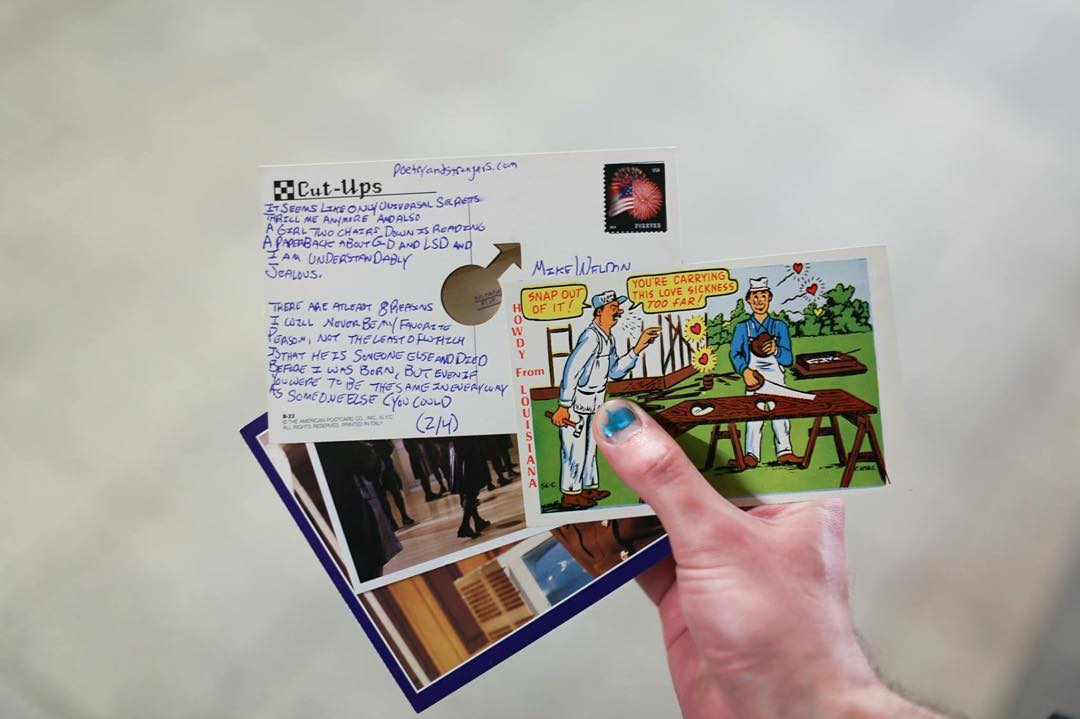 poetryandstrangers.com
Cut-Ups
IT SEEMS LIKE ONLY UNIVERSAL SECRETS
THRILL ME ANYMORE AND ALSO
A GIRL TWO CHAIRS DOWN IS READING
A PAPERBACK ABOUT G-D AND LSD AND
I AM UNDERSTANDABLY
JEALOUS.
THERE ARE ATLEAST 8 REASONS
I WILL NEVER BE MY FAVORITE
PERSON, NOT THE LEAST OF WHICH
IS THAT HE IS SOMEONE ELSE AND DIED
BEFORE I WAS BORN, BUT EVEN IF
YOU WERE TO BE THE SAME IN EVERY WAY
AS SOMEONE ELSE (YOU COULD
(2/4)
B-22
© THE AMERICAN POSTCARD CO., INC., N.Y.C.
ALL RIGHTS RESERVED. PRINTED IN ITALY
USA
FOREVER
MIKE WELDON
HOWDY From LOUISIANA
SNAP OUT
OF IT!
YOU'RE CARRYING
THIS LOVE SICKNESS
TOO FAR!
56-C